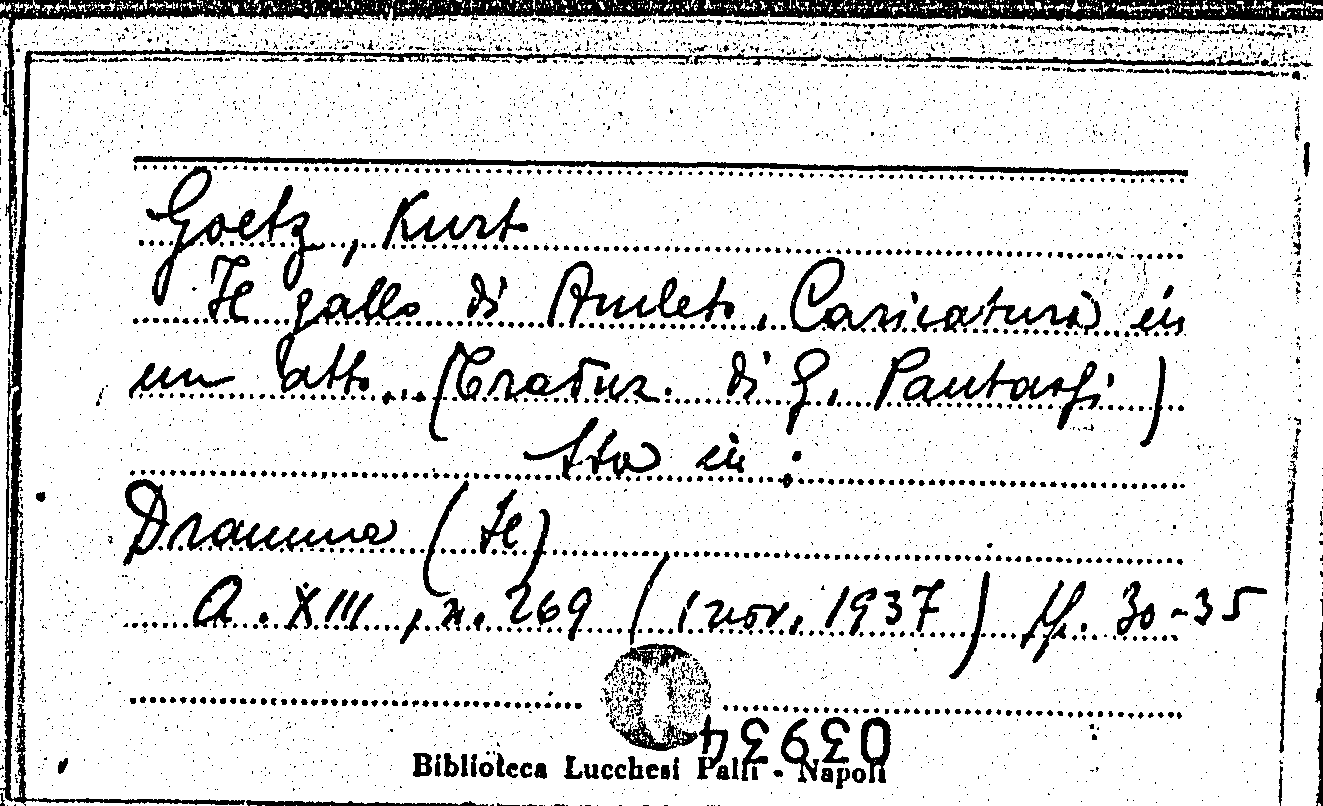 Goetz, Kurt
Il gallo di Amleto. Caricatura in
un atto... (Traduz. di G. Pantarfi)
Sta in:
Dramma (Il)
A. XIII, n. 269 (1 nov. 1937) pp. 30-35
03934
Biblioteca Lucchesi Palli - Napoli